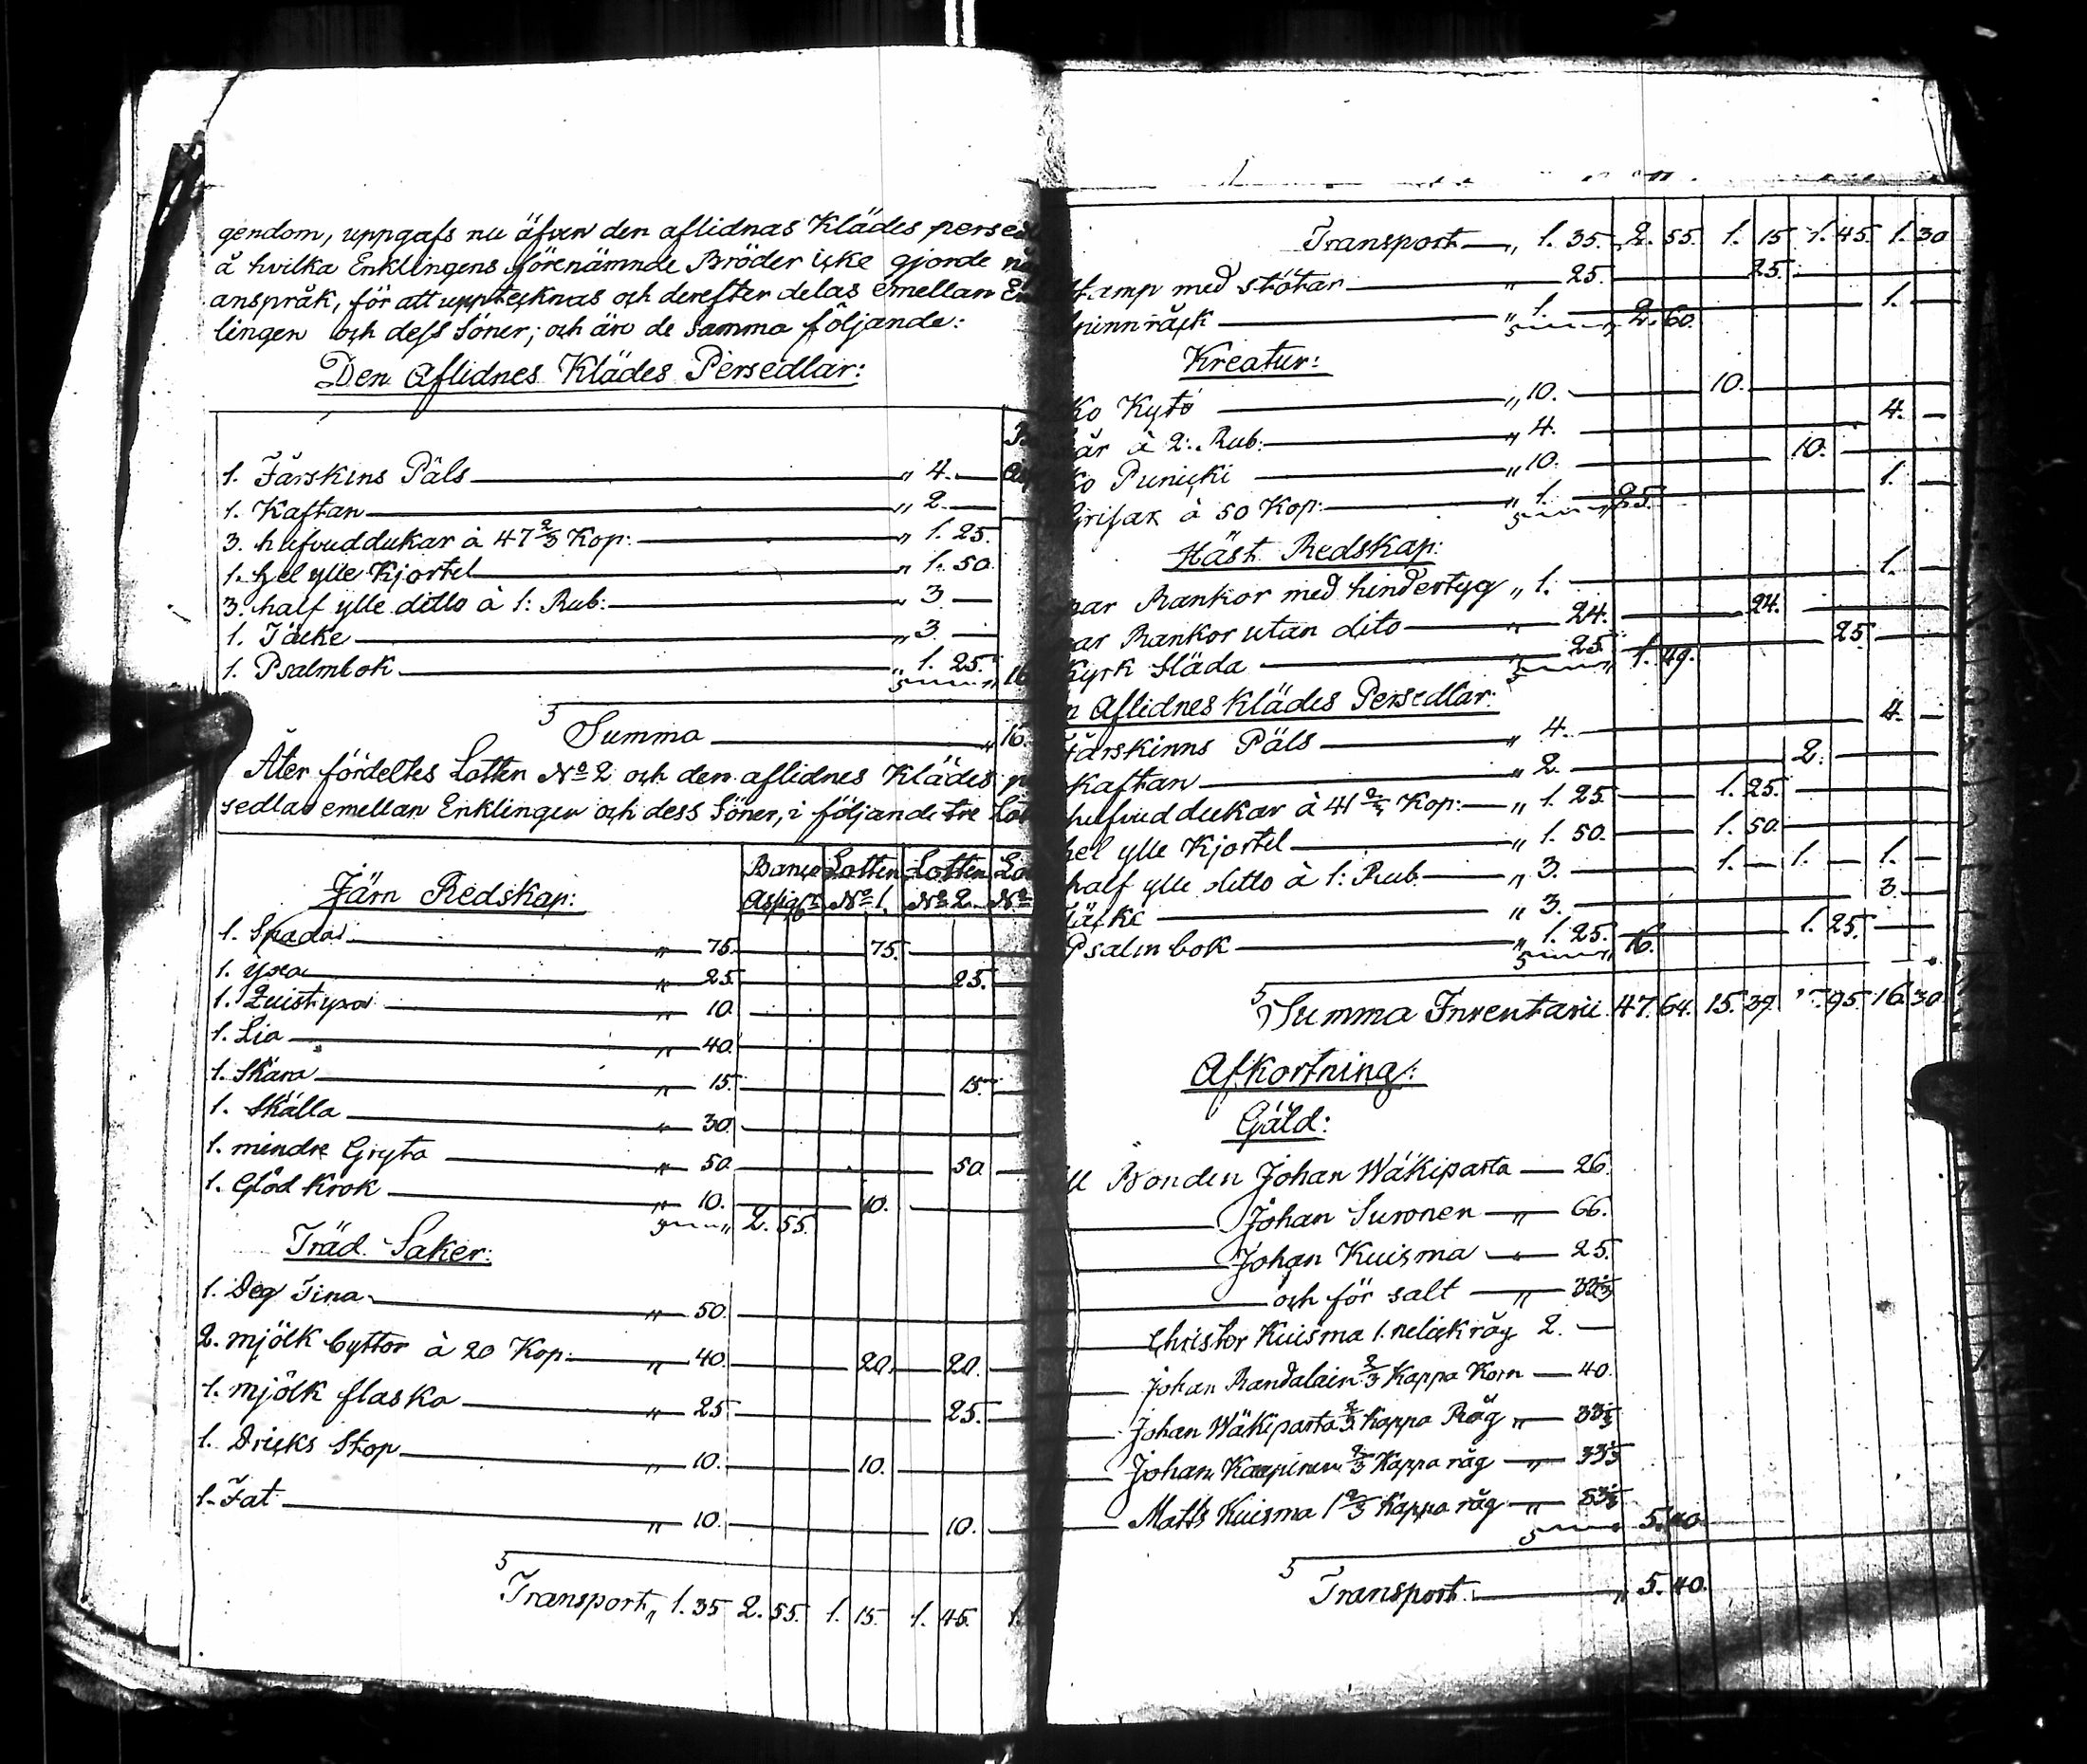 gendom, uppgafs nu äfven den aflidnas Klädes persed
å hvilka Enklingens förenämnde Bröder icke gjorde nå
anspråk, för att upptecknas och derefter delas emellan En
lingen och dess Söner; och äro de samma följande:
Den Aflidnes Klädes Persedlar:
1. Fårskins Päls „ 4. —
1. Kaftan „ 2 —
3. hufvuddukar à 47 2/3 Kop: „ 1. 25.
1. hel ylle Kjortel „ 1. 50.
3. half ylle ditto à 1: Rub: „ 3 —
1. Jacke „ 3. —
1. Psalmbok „ 1. 25. 16
Summa „ 16.
Åter fördeltes Lotten No 2 och den aflidnes Klädes p
sedlar emellan Enklingen och dess Söner, i följande tre Lot
Banco Lotten Lotten Lo
Järn Redskap: Assigr No 1. No 2. No
1. Spada „ 75. 75.
1. Yxa „ 25. 25.
1. Quistyxa „ 10.
1. Lia „ 40.
1. Skära „ 15. 15.
1. Skälla „ 30.
1. mindre Gryta „ 50. 50.
1. Glöd Krok „ 10. 2. 55. 10.
Träd Saker:
1. Deg Tina „ 50.
2. mjölk byttor à 20 Kop: „ 40. 20. 20.
1. mjölk flaska „ 25 25.
1. Dricks Stop „ 10. 10.
1. Fat „ 10. 10.
Transport „ 1. 35 2. 55. 1. 15. 1. 45. 1.
Transport „ 1. 35. 2. 55. 1. 15 1. 45. 1. 30
Hamp med stötar „ 25. 25.
Spinnråck „ 1. 2. 60. 1.
Kreatur:
Ko Kytö „ 10. 10.
år à 2: Rub: „ 4. 4. —
Ko Punicki „ 10. 10.
Grisar à 50 Kop: „ 1. 25. 1.
Häst Redskap:
par Rankor med hindertyg „ 1. 1.
par Rankor utan dito „ 24. 24.
Kyrk Släda „ 25. 1. 49. 25.
n Aflidnes Klädes Persedlar:
Fårskinns Päls „ 4. 4. —
Kaftan „ 2. 2.
hufvuddukar à 41 2/3 Kop: „ 1. 25. 1. 25.
hel ylle Kjortel „ 1. 50. 1. 50.
half ylle ditto à 1: Rub. „ 3. 1. — 1. — 1. —
Jäcke „ 3. 3. —
Psalmbok „ 1. 25. 16. 1. 25.
Summa Inventarii 47. 64. 15. 39. 95. 16. 30.
Afkortning:
Gäld:
ll Bonden Johan Wäkiparta — 26.
Johan Suronen „ 66.
Johan Kuisma „ 25.
och för salt „ 33 1/3
Christer Kuisma 1. nelick råg 2. —
Johan Randalain 2/3 Kappa Korn — 40.
Johan Wäkiparta 2/3 Kappa Råg „ 33 1/3
Johan Kaupinen 2/3 Kappa råg „ 33 1/3
Matts Kuisma 1 2/3 Kappa råg „ 5. 40.
Transport. „ 5. 40.